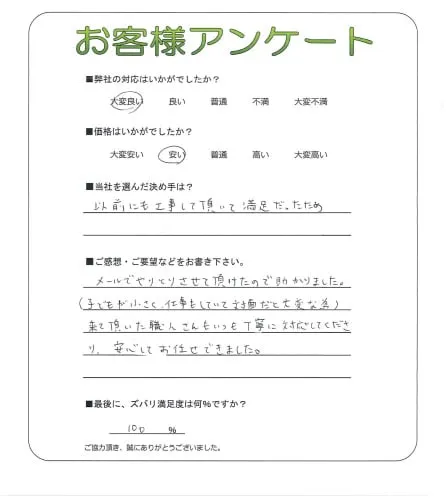 お客様アンケート
■弊社の対応はいかがでしたか?
大変良い 良い 普通 不満 大変不満
■価格はいかがでしたか?
大変安い 安い 普通 高い 大変高い
■当社を選んだ決め手は?
以前にも工事して頂いて満足だったため
■ご感想・ご要望などをお書き下さい。
メールでやりとりさせて頂けたので助かりました。
(子どもが小さく、仕事をしていて対面だと大変な為)
来て頂いた職人さんもいつも丁寧に対応してくださ
り、安心してお任せできました。
■最後に、ズバリ満足度は何%ですか?
100 %
ご協力頂き、誠にありがとうございました。